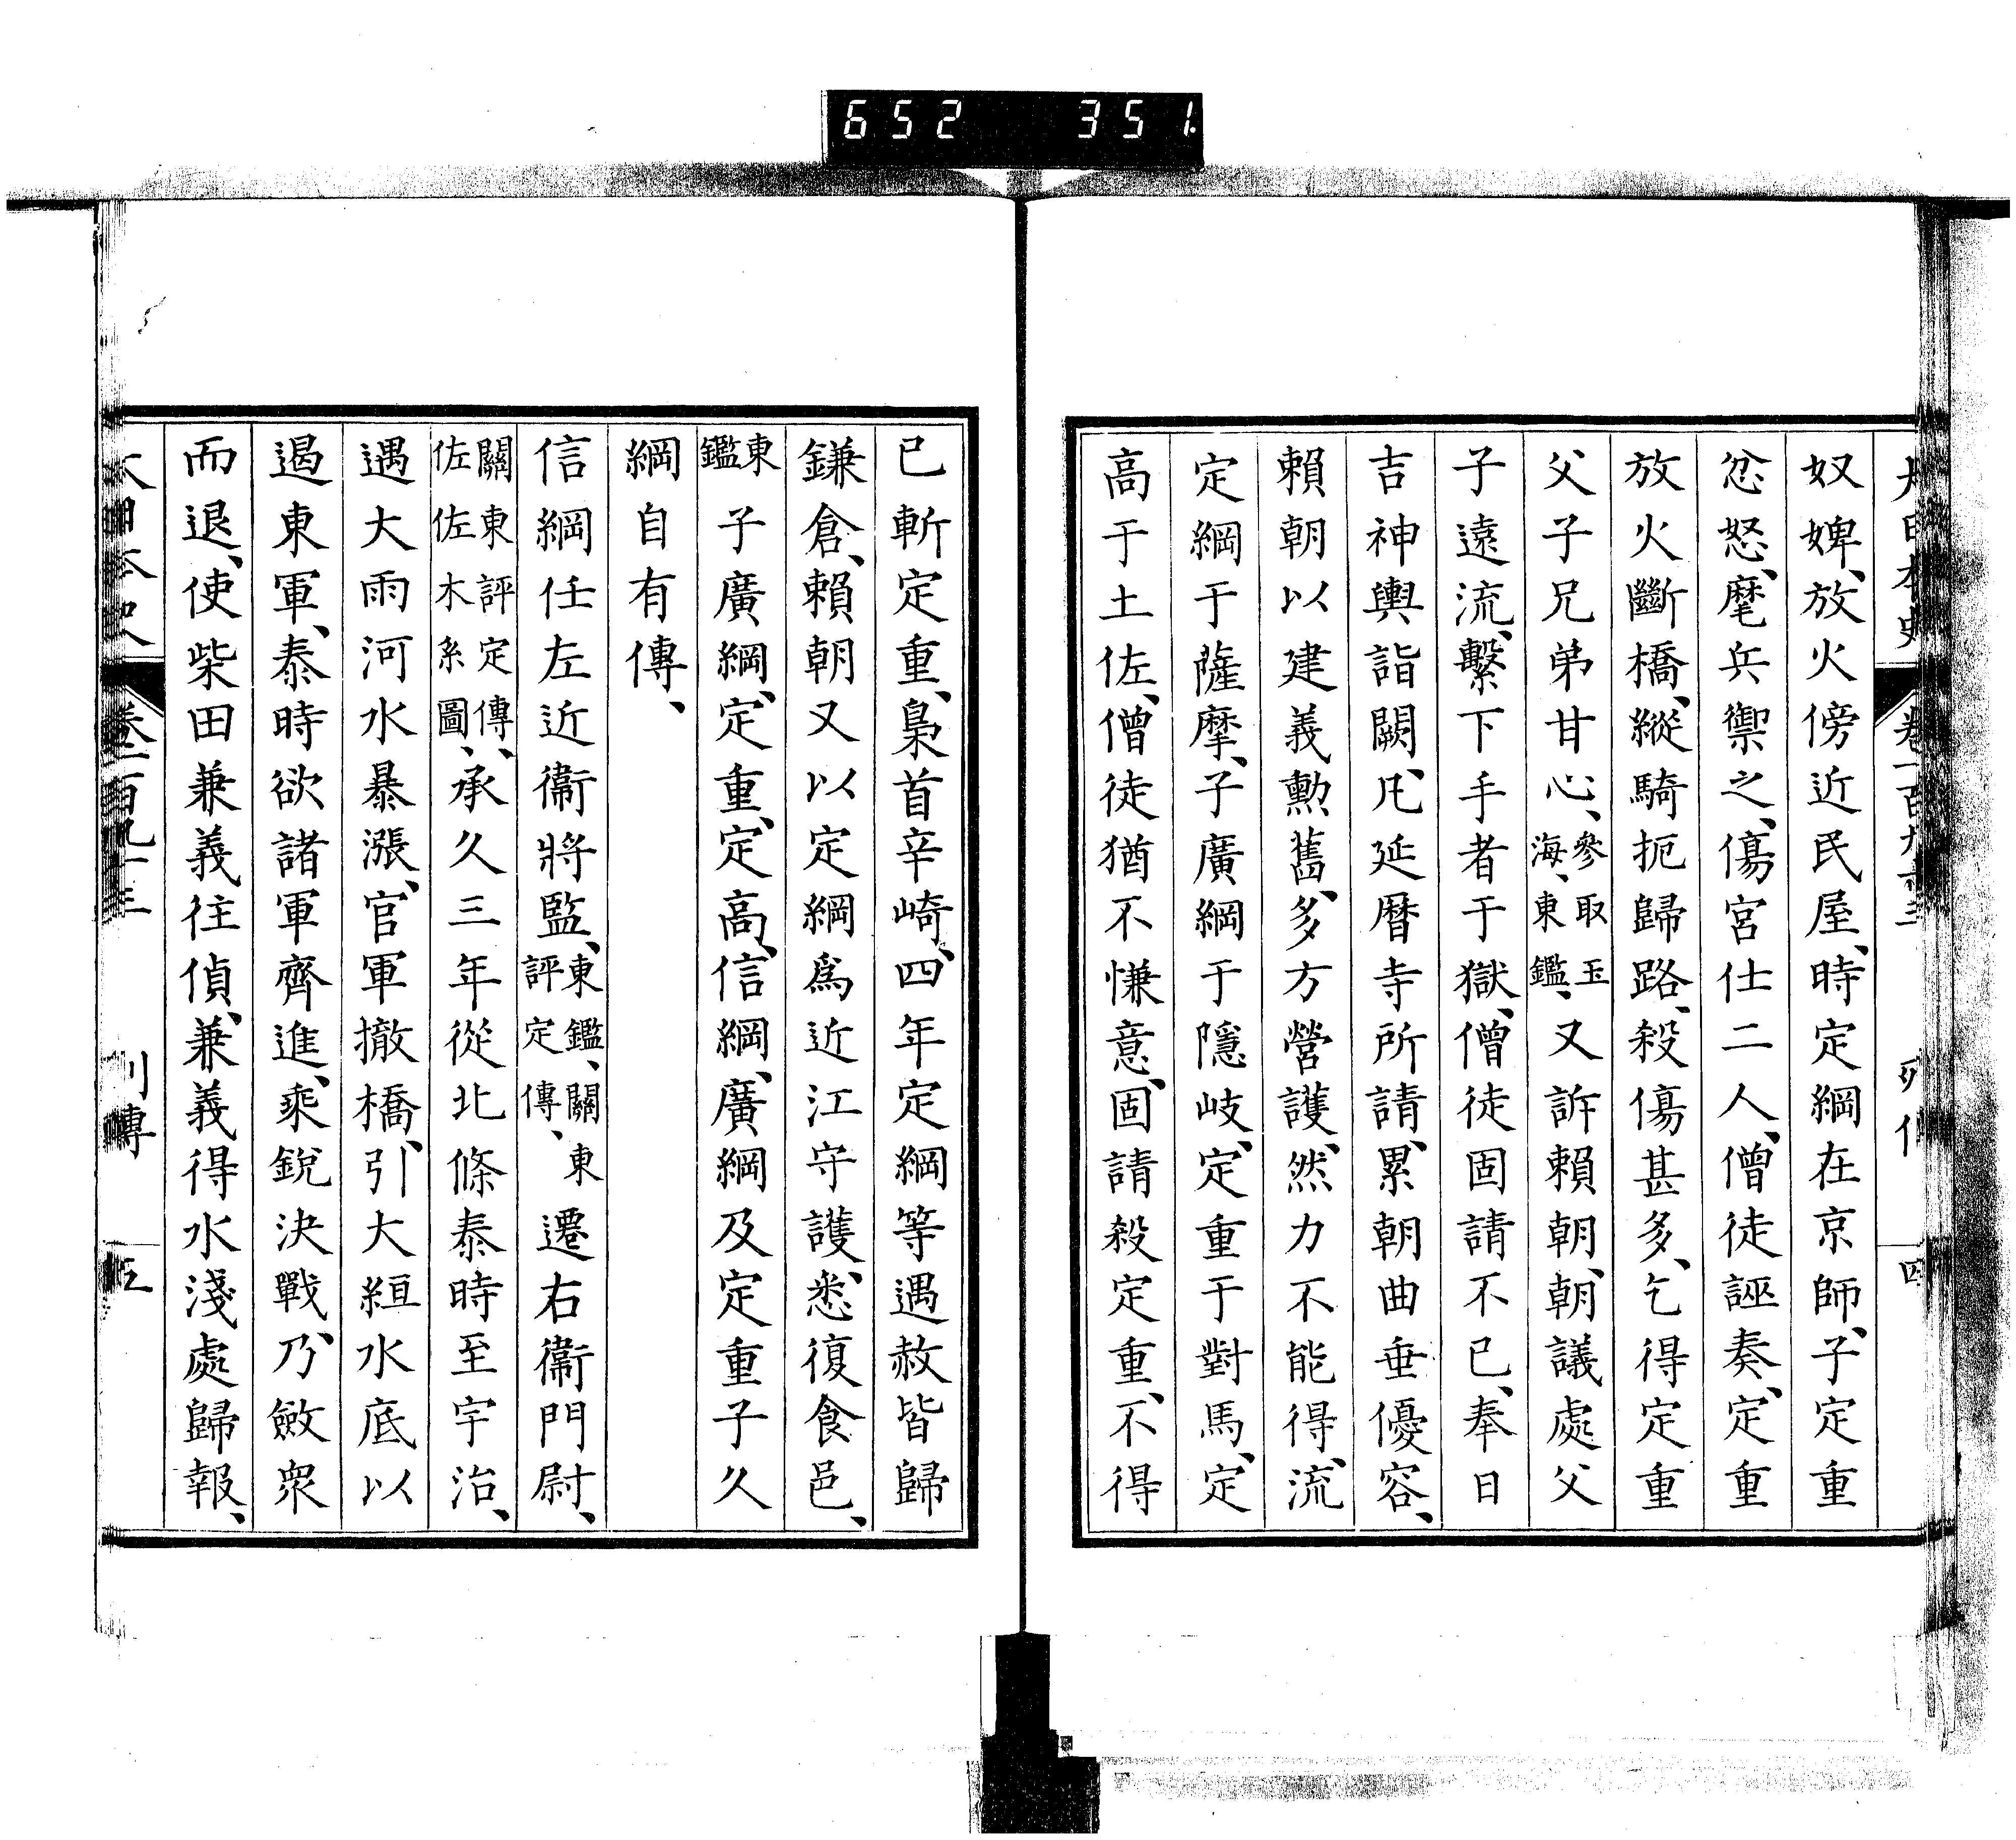 652 351.
大日本史 卷一百九十三 列傳 四
奴婢、放火傍近民屋、時定綱在京師、子定重
忿怒、麾兵禦之、傷宮仕二人、僧徒誣奏、定重
放火斷橋、縱騎扼歸路、殺傷甚多、乞得定重
父子兄弟甘心、參取玉海、東鑑、又訴賴朝、朝議處父
子遠流、繫下手者于獄、僧徒固請不已、奉日
吉神輿詣闕、凡延曆寺所請、累朝曲垂優容、
賴朝以建義勳舊、多方營護、然力不能得、流
定綱于薩摩、子廣綱于隱岐、定重于對馬、定
高于土佐、僧徒猶不慊意、固請殺定重、不得
已斬定重、梟首辛崎、四年定綱等遇赦皆歸
鎌倉、賴朝又以定綱爲近江守護、悉復食邑、
東鑑子廣綱、定重、定高、信綱、廣綱及定重子久
綱自有傳、
信綱任左近衞將監、東鑑、關東評定傳、遷右衞門尉、
關東評定傳、佐佐木系圖、承久三年從北條泰時至宇治、
遇大雨河水暴漲、官軍撤橋、引大絙水底以
遏東軍、泰時欲諸軍齊進、乘銳決戰、乃斂衆
而退、使柴田兼義往偵、兼義得水淺處歸報、
大日本史 卷一百九十三 列傳 五